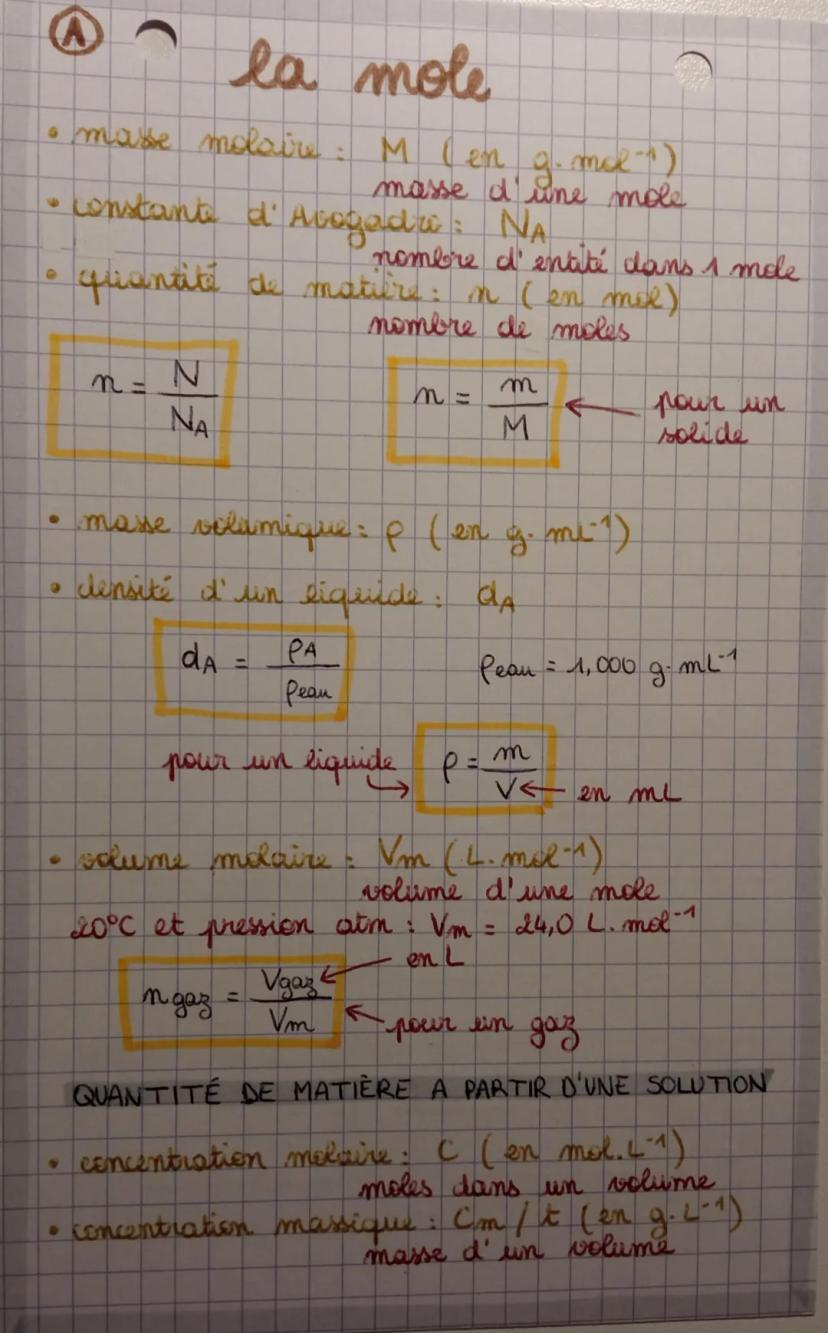 A
la mole
• masse molaire : M ( en g. mol⁻¹)
masse d'une mole
• constante d'Avogadro : NA
nombre d'entité dans 1 mole
• quantité de matière : n ( en mol)
nombre de moles
n = N / NA
n = m / M ← pour un solide
• masse volumique : ρ ( en g. mL⁻¹)
• densité d'un liquide : dA
dA = ρA / ρeau
ρeau = 1,000 g. mL⁻¹
pour un liquide → ρ = m / V ← en mL
• volume molaire : Vm ( L. mol⁻¹)
volume d'une mole
20°C et pression atm : Vm = 24,0 L. mol⁻¹
n gaz = Vgaz / Vm
← en L
← pour un gaz
QUANTITÉ DE MATIÈRE A PARTIR D'UNE SOLUTION
• concentration molaire : C ( en mol. L⁻¹)
moles dans un volume
• concentration massique : Cm / t ( en g. L⁻¹)
masse d'un volume